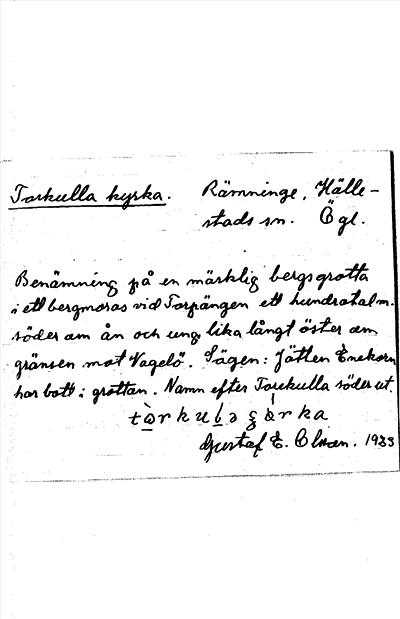 Torkulla kyrka. Rämninge, Hälle-
stads sn. Ögl.
Benämning på en märklig bergsgrotta
i ett bergmoras vid Torpängen ett hundratal m.
söder om ån och ung. lika långt öster om
gränsen mot Vagelö. Sägen: Jätten Enekorn
har bott i grottan. Namn efter Torekulla söder ut
Gustaf E. Olsson. 1933